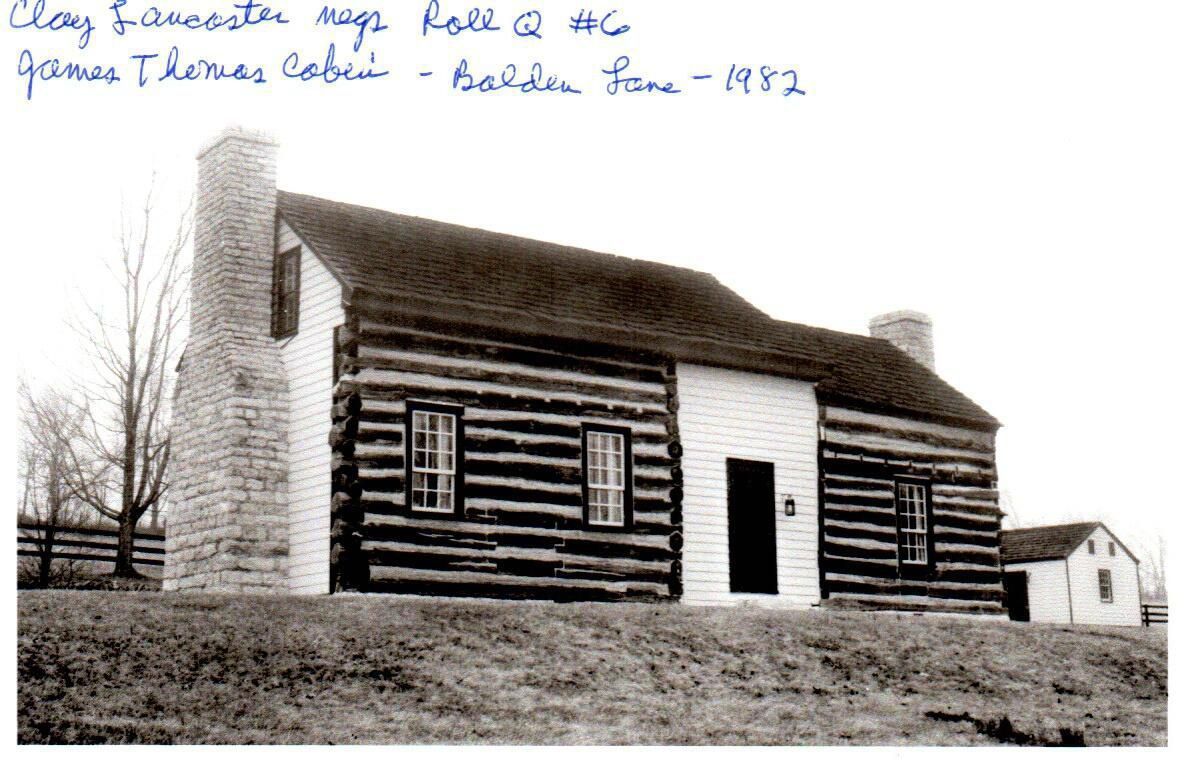 Clay Lancaster negs Roll Q #6
James Thomas Cabin - Balden Lane - 1982